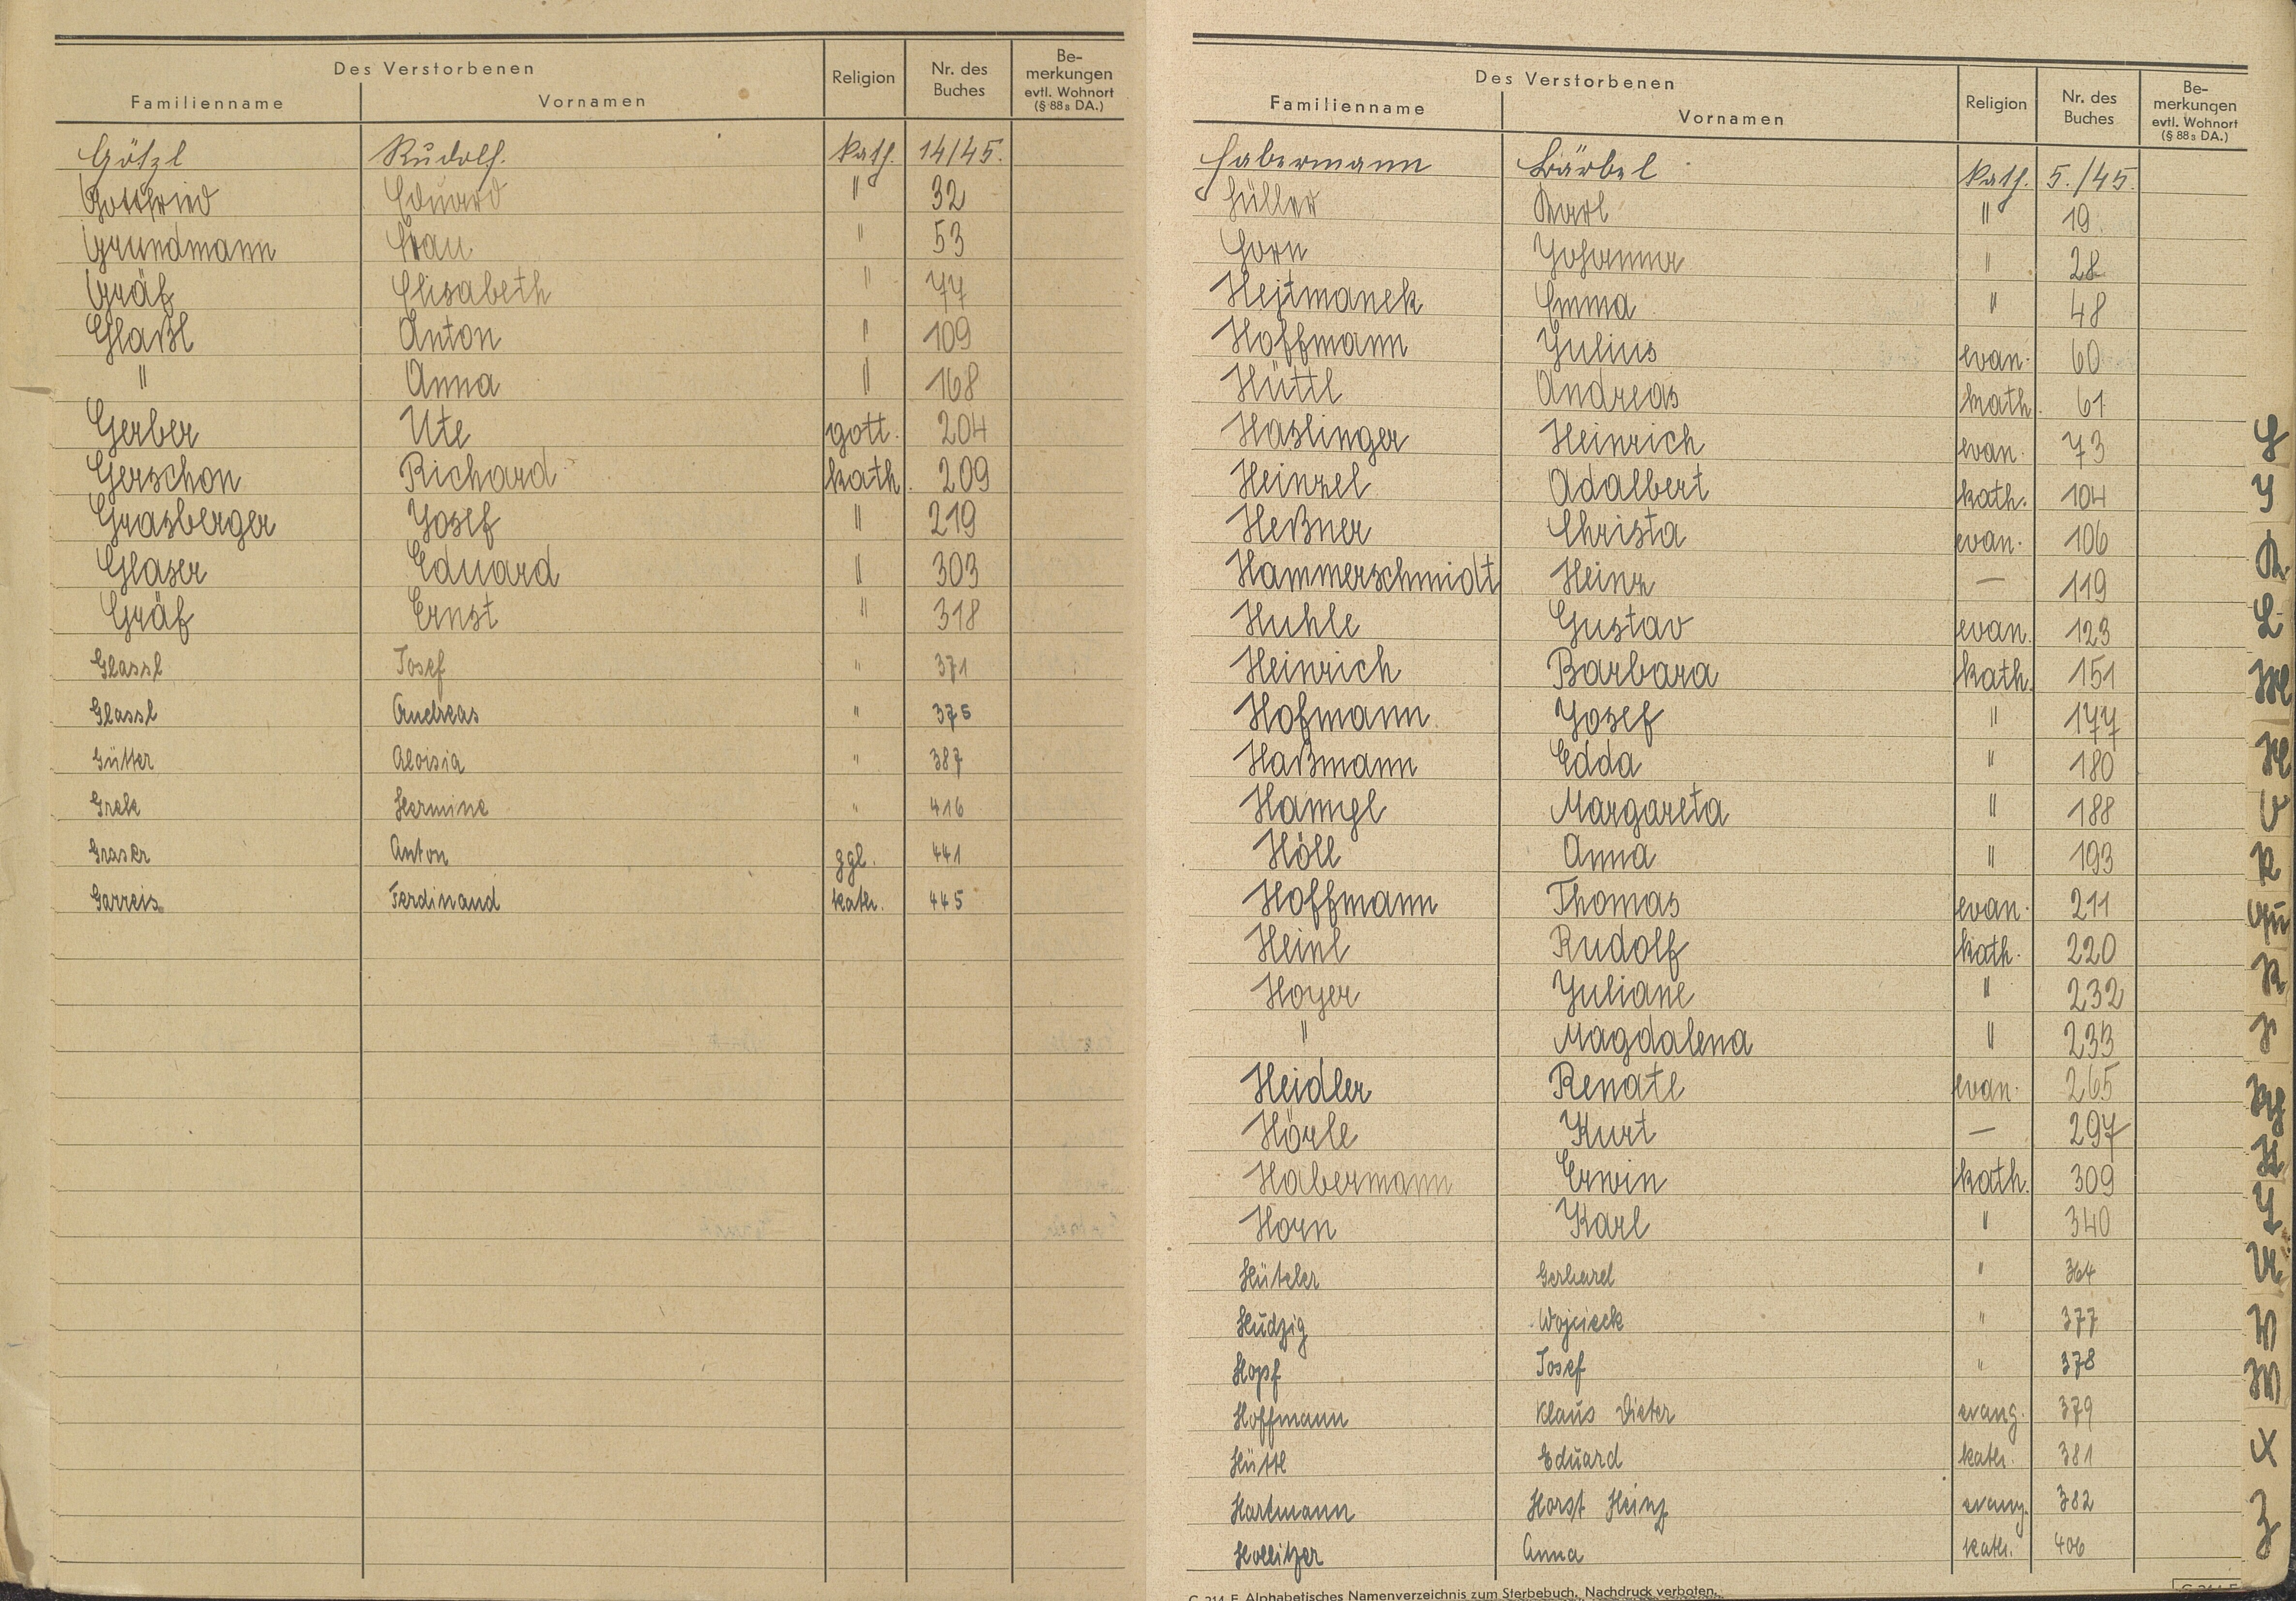 Des Verstorbenen
Familienname Vornamen Religion Nr. des Buches Be-merkungen evtl. Wohnort (§ 88s DA.)
Götzl Rudolf. kath. 14/45.
Gottfried Eduard " 32
Grundmann Frau " 53
Gräf Elisabeth " 77
Glaßl Anton " 109
" Anna " 168
Gerber Ute gott. 204
Gerschon Richard kath. 209
Grasberger Josef " 219
Glaser Eduard " 303
Gräf Ernst " 318
Glassl Josef " 371
Glassl Andreas " 375
Gütter Aloisia " 387
Hermine " 416
Graser Anton ggl. 441
Garreis Ferdinand kath. 445
Des Verstorbenen
Familienname Vornamen Religion Nr. des Buches Be-merkungen evtl. Wohnort (§ 88s DA.)
Habermann Bärbel kath. 5./45.
Hüller Karl " 19
Horn Johanna " 28
Hejtmanek Emma " 48
Hoffmann Julius evan. 60
Hüttl Andreas kath. 61
Haslinger Heinrich evan. 73
Heinzel Adalbert kath. 104
Heßner Christa evan. 106
Hammerschmidt Heinz — 119
Huhle Gustav evan. 123
Heinrich Barbara kath. 151
Hofmann Josef " 177
Haßmann Edda " 180
Hanngl Margareta " 188
Höll Anna " 193
Hoffmann Thomas evan. 211
Heinl Rudolf kath. 220
Hoyer Juliane " 232
" Magdalena " 233
Heidler Renate evan. 265
Hörle Kurt — 297
Habermann Erwin kath. 309
Horn Karl " 340
Gerhard " 364
Hudzig Wojcieck " 377
Hopf Josef " 378
Hoffmann Klaus Dieter evang. 379
Hüttl Eduard kath. 381
Hartmann Horst Heinz evang. 382
Hollitzer Anna kath. 406
G 214 E Alphabetisches Namenverzeichnis zum Sterbebuch. Nachdruck verboten.